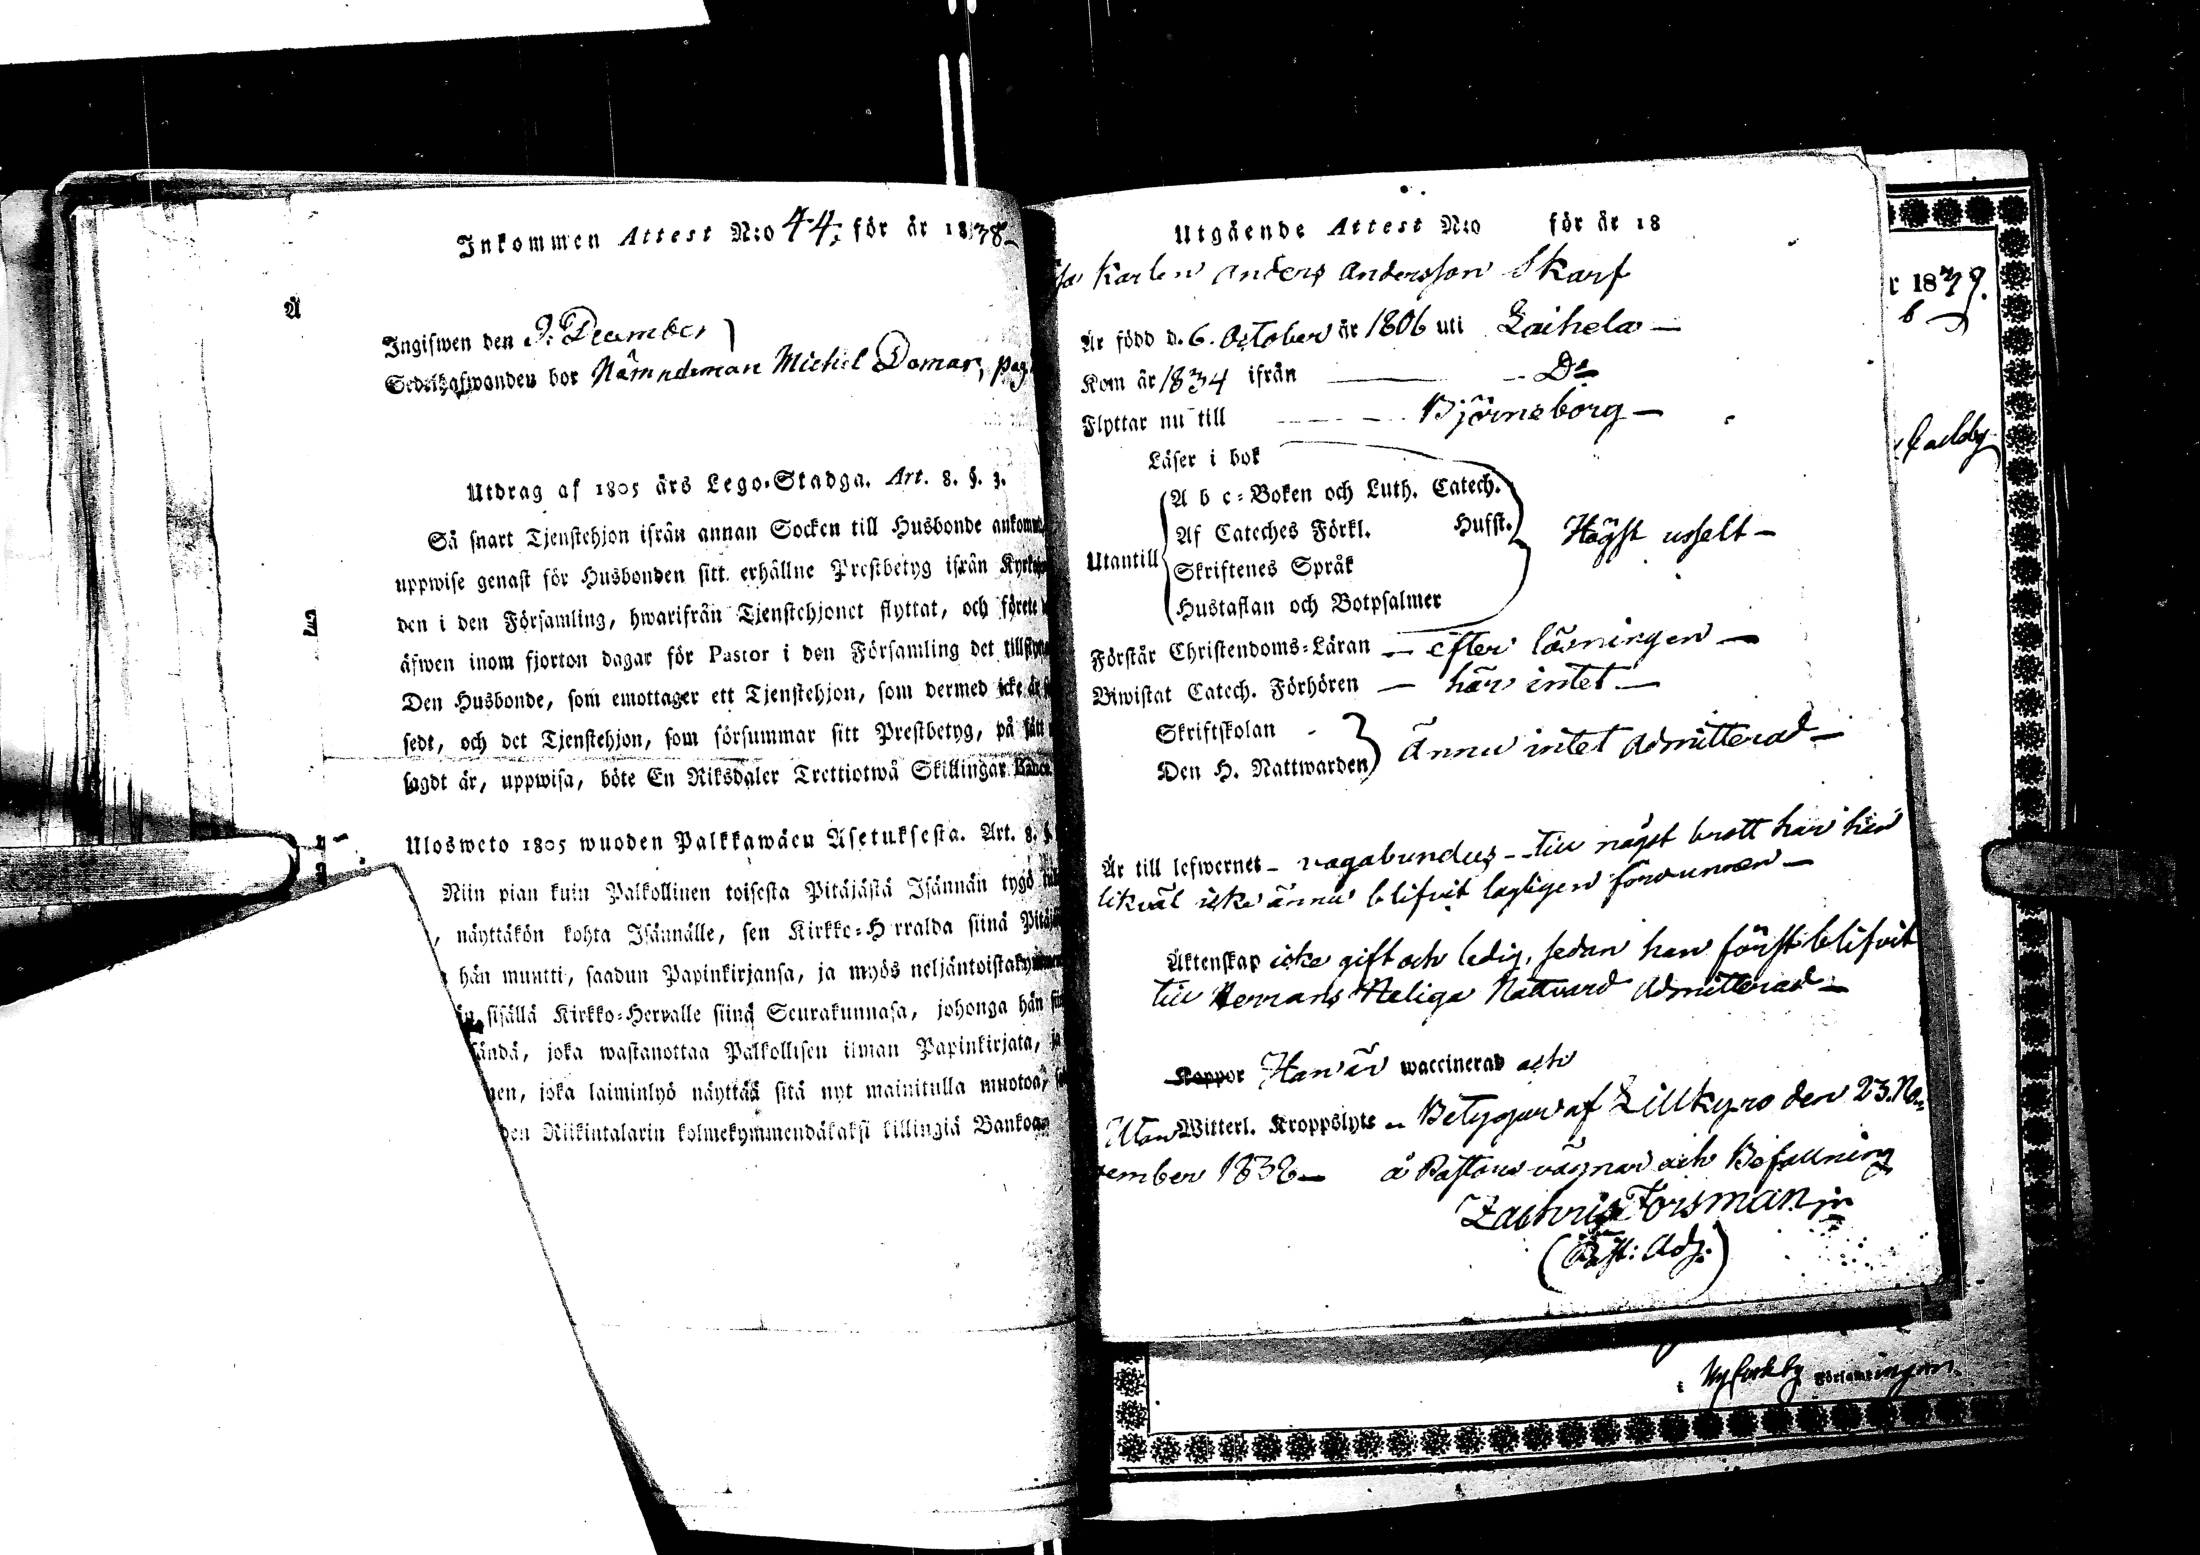 Inkommen Attest N:o 44, för år 1838
Ingifwen den 9. December
Sedelhafwanden bor Nämndeman Michel Domar, pag.
Utdrag af 1805 års Lego-Stadga. Art. 8. §. 3.
Så snart Tjenstehjon ifrån annan Socken till Husbonde
uppwise genast för Husbonden sitt erhållne Prestbetyg ifrån
den i den Församling, hwarifrån Tjenstehjonet flyttat, och förete
äfwen inom fjorton dagar för Pastor i den Församling det
Den Husbonde, som emottager ett Tjenstehjon, som dermed icke är
sedt, och det Tjenstehjon, som försummar sitt Prestbetyg, på sätt
sagdt är, uppwisa, böte En Riksdaler Trettiotwå Skillingar Banco
Ulosweto 1805 wuoden Palkkawäen Asetuksesta. Art. 8. §.
Niin pian kuin Palkollinen toisesta Pitäjästä Isännän tygö
, näyttäkön kohta Isännälle, sen Kirkko-H rralda siinä
hän muutti, saadun Papinkirjansa, ja myös
sisällä Kirkko-Herralle siinä Seurakunnasa, johonga hän
joka wastanottaa Palkollisen ilman Papinkirjata,
nen, joka laiminlyö näyttää sitä nyt mainitulla muotoa,
den Riikintalarin kolmekymmendäkaksi killingiä Bankoa
Utgående Attest N:o för år 18
Karlen Anders Andersson Skarf
Är född d. 6. October år 1806 uti Laihela —
Kom år 1834 ifrån — D:o
Flyttar nu till — Björneborg —
Läser i bok
A b c-Boken och Luth. Catech.
Af Cateches Förkl. Husst.
Utantill
Skriftenes Språk
Hustaflan och Botpsalmer
Högst usselt —
Förstår Christendoms-Läran — efter läsningen —
Biwistat Catech. Förhören — här intet —
Skriftskolan
Den H. Nattwarden
ännu intet admitterad —
Är till lefwernet — vagabundus — till något brott har han
likväl icke ännu blifvit lagligen förvunnen —
Äktenskap icke gift och ledig, sedan han först blifvit
till Herrans Heliga Nattvard admitterad —
Koppor Han är waccinerad och
Utan Witterl. Kroppslyte — Betygar af Lillkyro den 23. No-
vember 1838 — å Pastors vägnar och Befallning
Zachris Forsman jr
(Past: Adj.)
r 1839.
Carleby
i Ny Carleby Församlingen